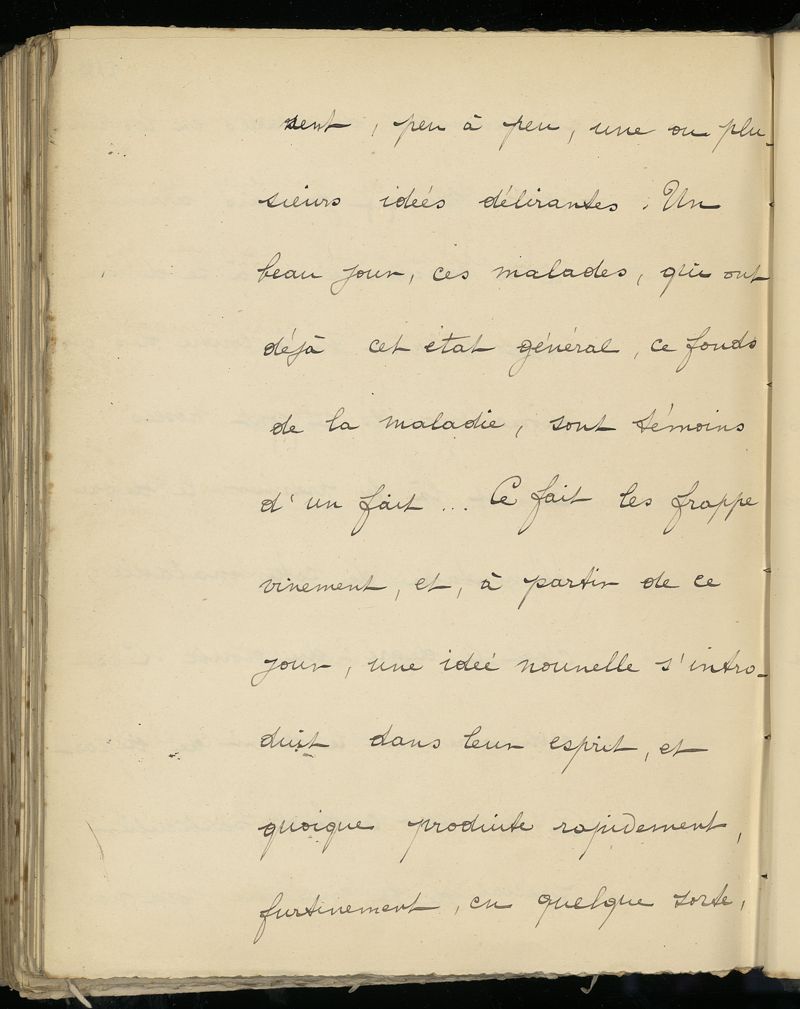 sent, peu à peu, une ou plu-
sieurs idées délirantes. Un
beau jour, ces malades, qui ont
déjà cet état général, ce fonds
de la maladie, sont témoins
d'un fait ... Ce fait les frappe
vivement, et, à partir de ce
jour, une idée nouvelle s'intro-
duit dans leur esprit, et
quoique produite rapidement,
furtivement, en quelque sorte,